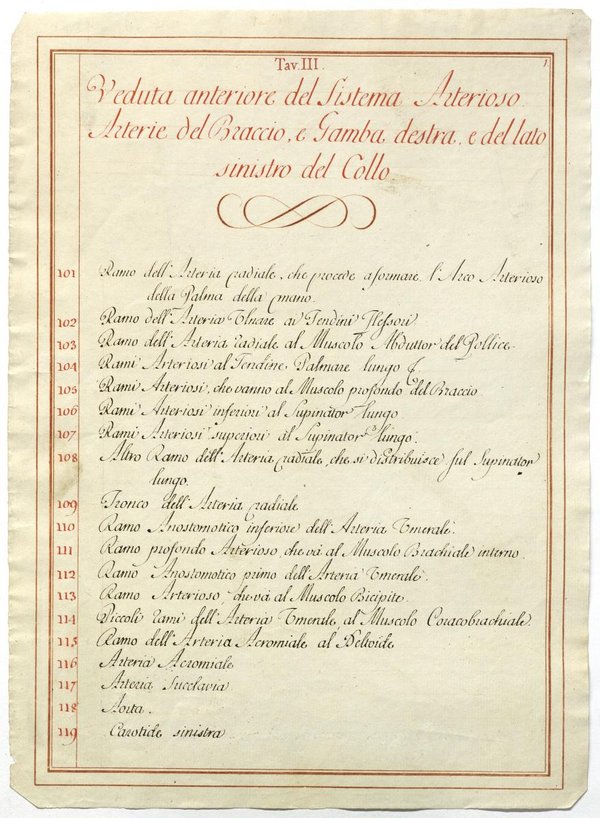 Tav. III.
1
Veduta anteriore del Sistema Arterioso.
Arterie del Braccio, e Gamba destra, e del lato
sinistro del Collo
101 Ramo dell'Arteria radiale, che procede a formare l'Arco Arterioso
della Palma della mano.
102 Ramo dell'Arteria Ulnare ai Tendini Flessori
103 Ramo dell'Arteria radiale al Muscolo Abduttor del Pollice
104 Rami Arteriosi al Tendine Palmare lungo
105 Rami Arteriosi, che vanno al Muscolo profondo del Braccio
106 Rami Arteriosi inferiori al Supinator lungo
107 Rami Arteriosi superiori al Supinator lungo.
108 Altro Ramo dell'Arteria radiale, che si distribuisce sul Supinator
lungo.
109 Tronco dell'Arteria radiale
110 Ramo Anostomotico inferiore dell'Arteria Umerale.
111 Ramo profondo Arterioso che và al Muscolo Brachiale interno.
112 Ramo Anostomotico primo dell'Arteria Umerale.
113 Ramo Arterioso che và al Muscolo Bicipite.
114 Piccoli rami dell'Arteria Umerale, al Muscolo Coracobrachiale
115 Ramo dell'Arteria Acromiale al Deltoide
116 Arteria Acromiale
117 Arteria Succlavia
118 Aorta.
119 Carotide sinistra